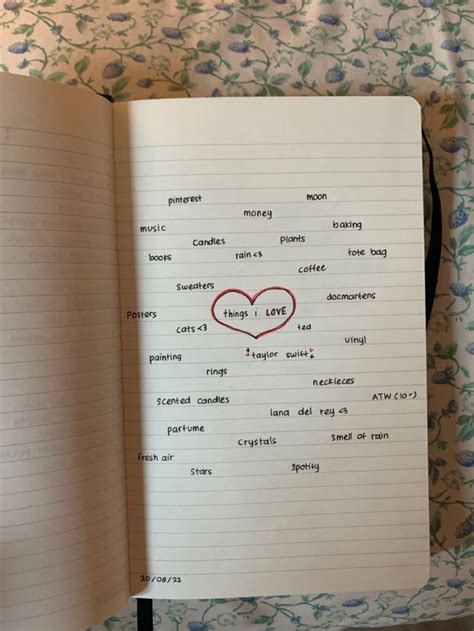 pinterest
moon
money
music
baking
candles
plants
books
rain <3
tote bag
coffee
sweaters
docmartens
Posters
things i LOVE
cats <3
ted
vinyl
painting
taylor swift
rings
neckleces
scented candles
ATW (10~)
lana del rey <3
parfume
crystals
smell of rain
fresh air
stars
spotify
20/08/22